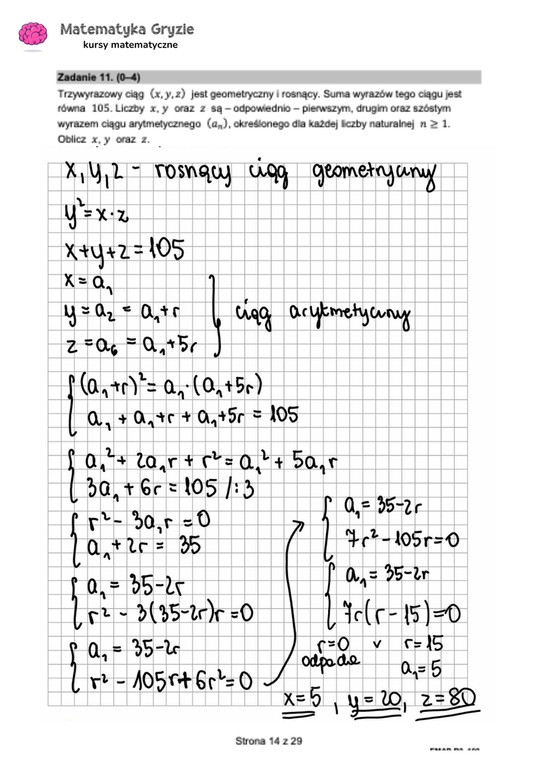 Matematyka Gryzie
kursy matematyczne
Zadanie 11. (0–4)
Trzywyrazowy ciąg (x, y, z) jest geometryczny i rosnący. Suma wyrazów tego ciągu jest
równa 105. Liczby x, y oraz z są – odpowiednio – pierwszym, drugim oraz szóstym
wyrazem ciągu arytmetycznego (aₙ), określonego dla każdej liczby naturalnej n ≥ 1.
Oblicz x, y oraz z.
x, y, z - rosnący ciąg geometryczny
y² = x·z
x+y+z = 105
x = a₁
y = a₂ = a₁+r } ciąg arytmetyczny
z = a₆ = a₁+5r
(a₁+r)² = a₁·(a₁+5r)
a₁ + a₁+r + a₁+5r = 105
a₁² + 2a₁r + r² = a₁² + 5a₁r
3a₁ + 6r = 105 /:3
r² - 3a₁r = 0
a₁ + 2r = 35
a₁ = 35-2r
r² - 3(35-2r)r = 0
a₁ = 35-2r
r² - 105r + 6r² = 0
a₁ = 35-2r
7r² - 105r = 0
a₁ = 35-2r
7r(r - 15) = 0
r=0 v r=15
odpada
a₁ = 5
x = 5, y = 20, z = 80
Strona 14 z 29